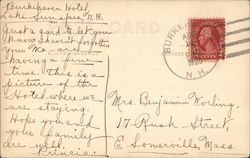 Burkehaven Hotel,
Lake Sunapee, N.H.
Just a card to let you
know I haven't forgotten
you. We are
having a fine
time. This is a
picture of the
Hotel where we
are staying.
Hope you and
your family
are well.
CARD
BURKE
N.H.
Mrs. Benjamin Worling,
17 Rush Street,
E. Somerville, Mass.